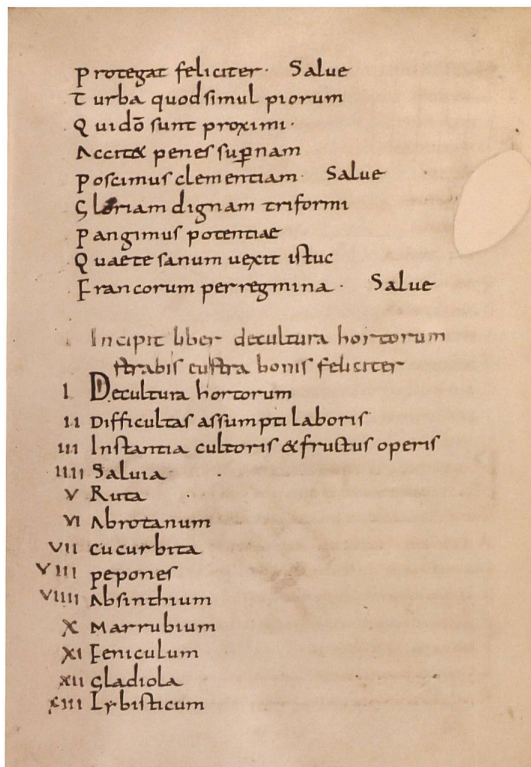 Protegat feliciter· Salue
Turba quod simul piorum
Quidō sunt proximi·
Accit& penes supnam
Poscimus clementiam· Salue
Gloriam dignam triformi
Pangimus potentiae
Quaete sanum uexit istuc
Francorum per regmina· Salue
Incipit liber decultura hortorum
strabi bonis feliciter
I Decultura hortorum
II Difficultas assumpti laboris
III Instantia cultoris &fructus operis
IIII Saluia·
V Ruta
VI Abrotanum
VII cucurbita
VIII pepones
VIIII Absinthium
X Marrubium
XI Feniculum
XII Gladiola
XIII Lybisticum